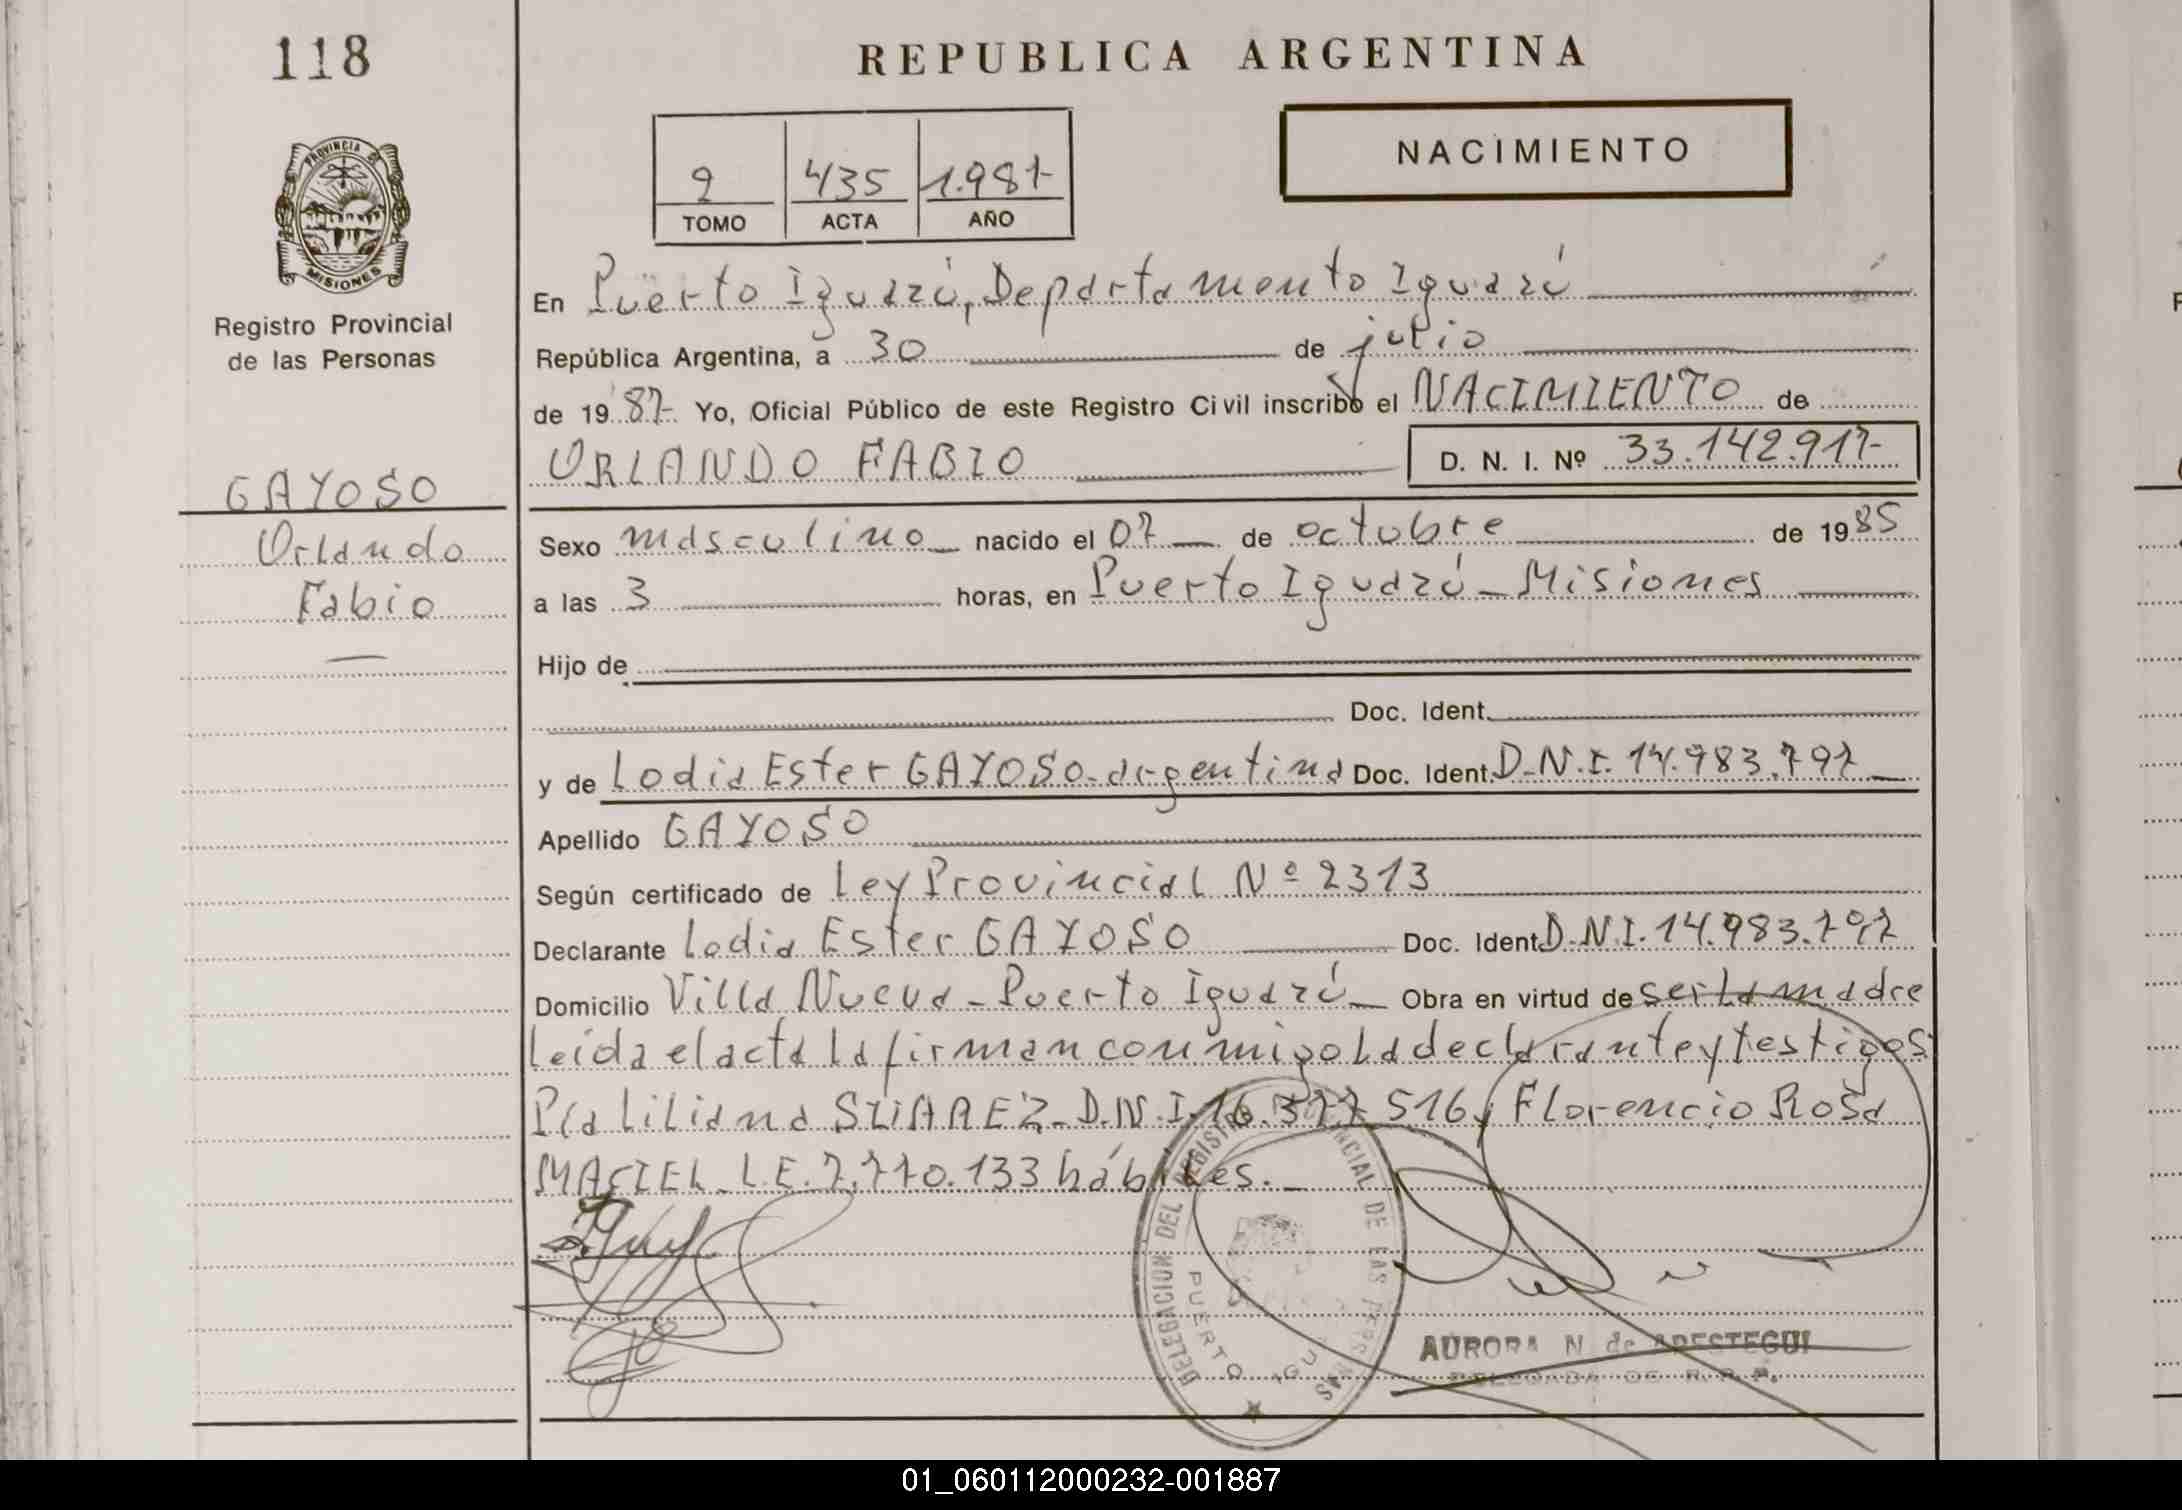 118
REPUBLICA ARGENTINA
PROVINCIA DE
MISIONES
Registro Provincial
de las Personas
NACIMIENTO
2 435 1.987-
TOMO ACTA AÑO
En Puerto Iguazú, Departamento Iguazú
República Argentina, a 30 de julio
de 19 87- Yo, Oficial Público de este Registro Civil inscribo el NACIMIENTO de
ORLANDO FABIO D. N. I. Nº 33.142.917-
GAYOSO
Orlando
Fabio
Sexo masculino nacido el 07 de octubre de 1985
a las 3 horas, en Puerto Iguazú - Misiones
Hijo de
Doc. Ident.
y de Lodia Ester GAYOSO - argentina Doc. Ident. D.N.I. 14.983.797
Apellido GAYOSO
Según certificado de Ley Provincial Nº 2313
Declarante Lodia Ester GAYOSO Doc. Ident. D.N.I. 14.983.797
Domicilio Villa Nueva - Puerto Iguazú Obra en virtud de ser la madre
leída el acta la firman conmigo la declarante y testigos
Liliana SUAREZ - D.N.I. 16.377.516 y Florencio Rosa
MACIEL - L.E. 7.770.133 hábiles.
DELEGACION DEL REGISTRO PROVINCIAL DE LAS PERSONAS
PUERTO IGU
AURORA N de ARESTEGUI
DELEGADA DE R. P. P.
01_060112000232-001887